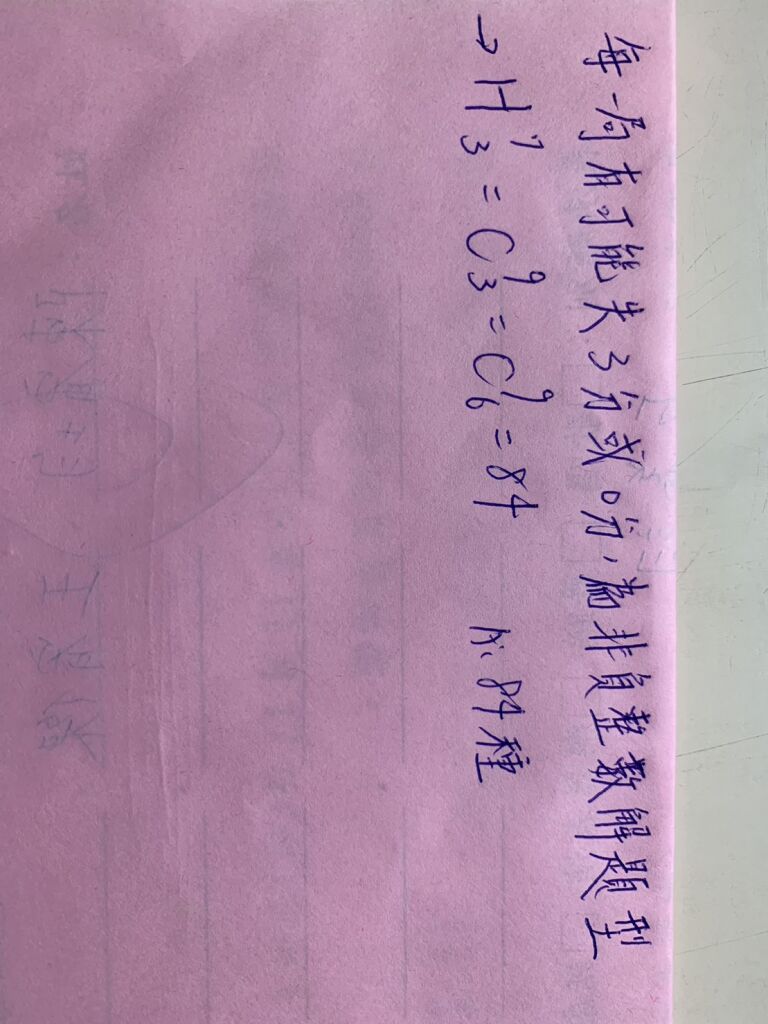 每一局有可能失3分或0分,為非負整數解題型
→ H⁷₃ = C⁹₃ = C⁹₆ = 84 A: 84種